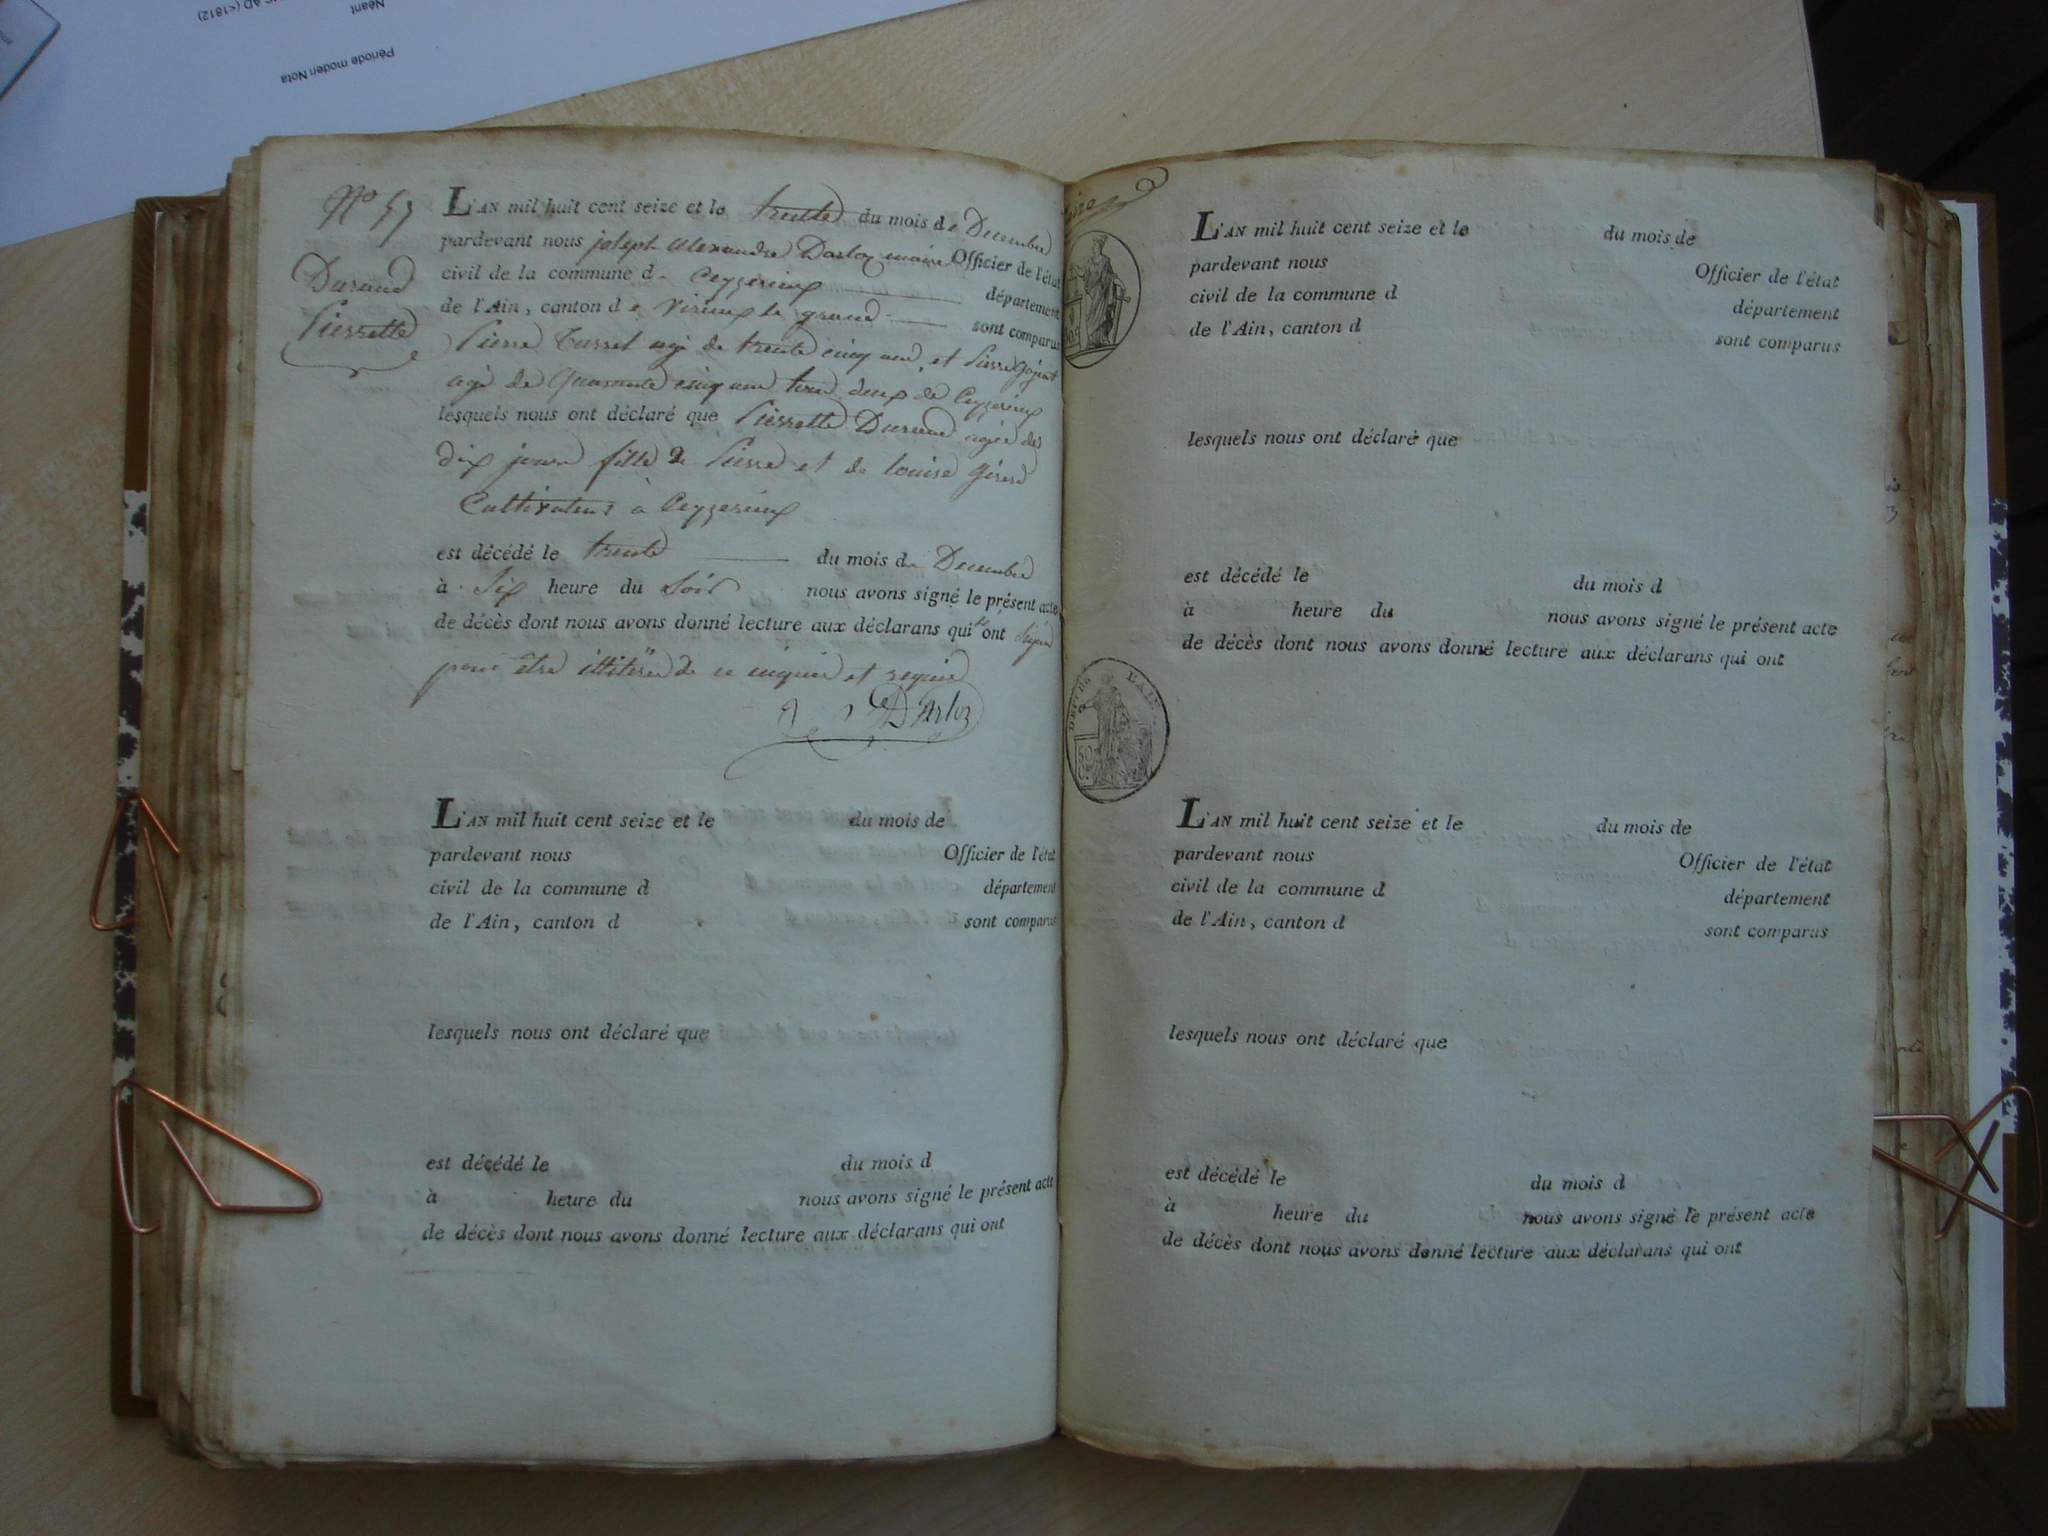 Néant
Période moden Nota
Durand
Pierrette
L'AN mil huit cent seize et le trente du mois de Decembre
pardevant nous joseph alexandre Darloz maire Officier de l'état
civil de la commune d. Ceyzerieux département
de l'Ain, canton de Virieux le grand sont comparus
Pierre agé de trente cinq ans, et Pierre
agé de Quarante cinq ans tous deux de Ceyzerieux
lesquels nous ont déclaré que Pierrette Durand agée de
dix jours fille de Pierre et de louise
Cultivateurs à Ceyzerieux
est décédé le trente du mois de Decembre
à Six heure du Soir nous avons signé le présent acte
de décès dont nous avons donné lecture aux déclarans qui ont
pour être de ce enquis et requis
Darloz
L'AN mil huit cent seize et le du mois de
pardevant nous Officier de l'état
civil de la commune d département
de l'Ain, canton d sont comparus
lesquels nous ont déclaré que
est décédé le du mois d
à heure du nous avons signé le présent acte
de décès dont nous avons donné lecture aux déclarans qui ont
L'AN mil huit cent seize et le du mois de
pardevant nous Officier de l'état
civil de la commune d département
de l'Ain, canton d sont comparus
lesquels nous ont déclaré que
est décédé le du mois d
à heure du nous avons signé le présent acte
de décès dont nous avons donné lecture aux déclarans qui ont
L'AIN
50
L'AN mil huit cent seize et le du mois de
pardevant nous Officier de l'état
civil de la commune d département
de l'Ain, canton d sont comparus
lesquels nous ont déclaré que
est décédé le du mois d
à heure du nous avons signé le présent acte
de décès dont nous avons donné lecture aux déclarans qui ont